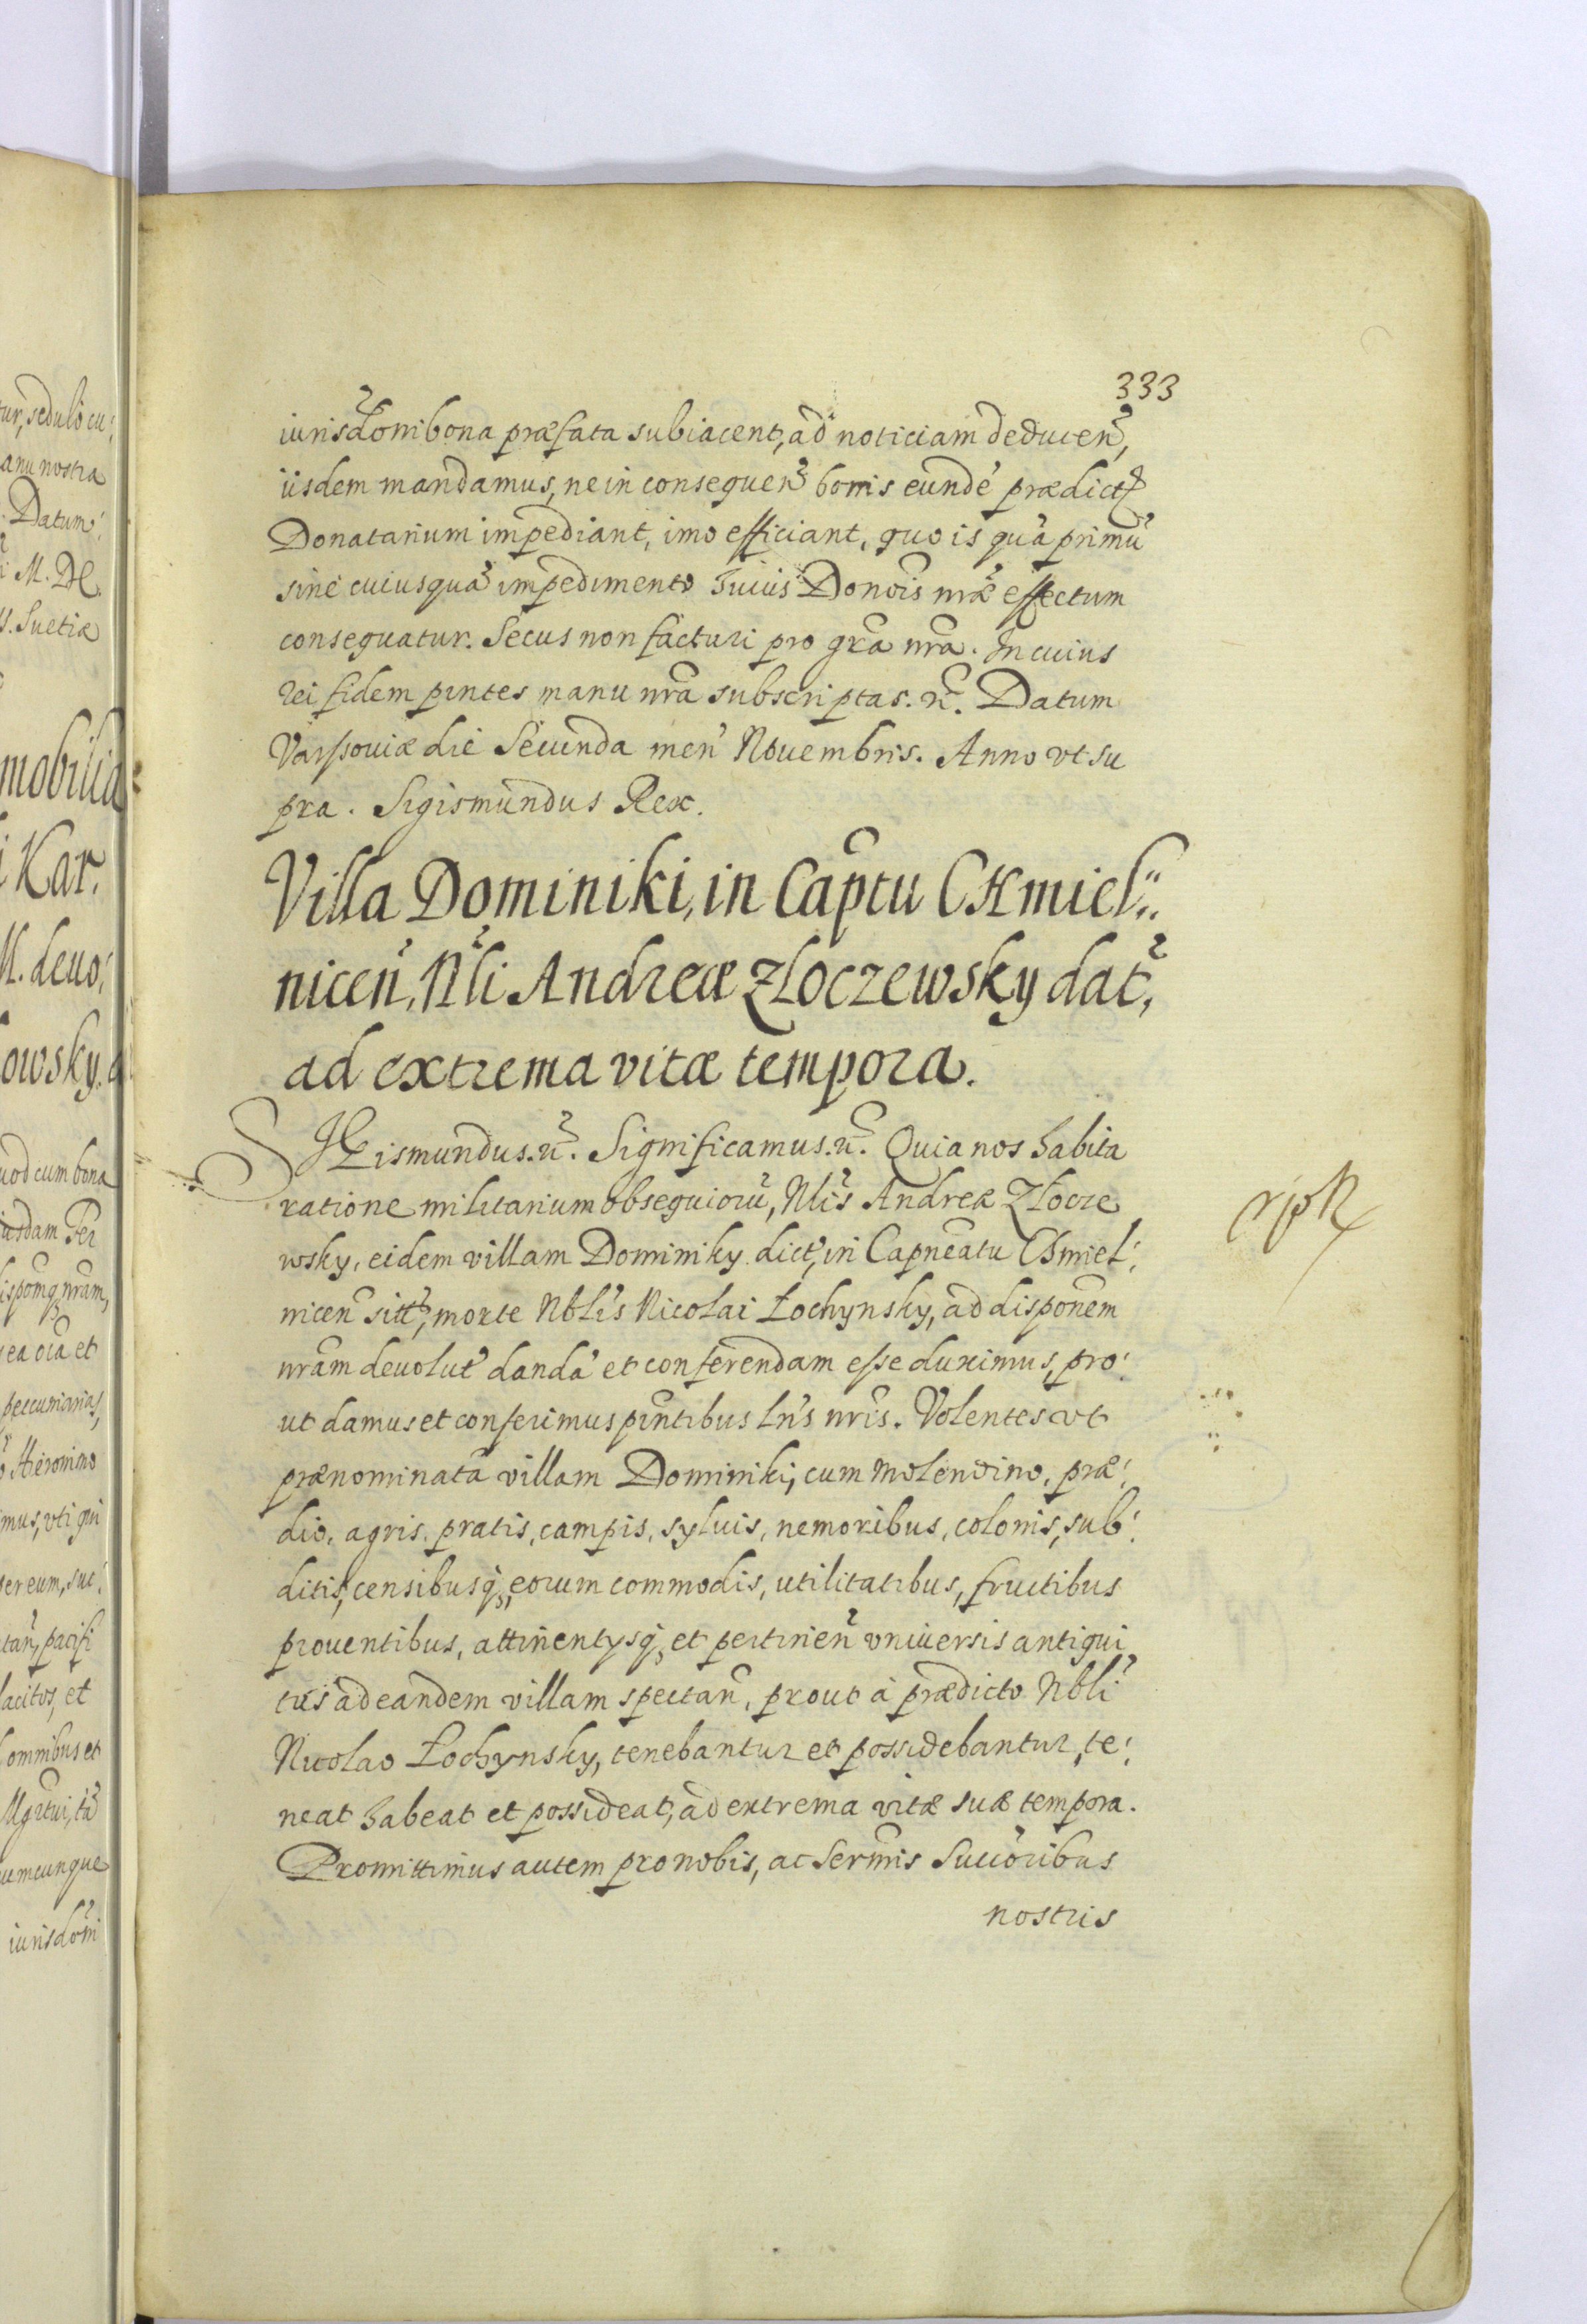 333
iurisdoni bona præfata subiacent, ad noticiam deducen̄,
iisdem mandamus, ne in consequen̄ bonis eundē prædict̄
Donatarium impediant, imo efficiant, quo is quā primū
sine cuiusquā impedimento huius Donōis nræ effectum
consequatur. Secus non facturi pro grā nrā. In cuius
rei fidem pn̄tes manu nrā subscriptas. etc̄. Datum
Varssouiæ die Secunda men̄ Nouembris. Anno vt su
pra. Sigismundus Rex.
Villa Dominiki, in Cap̄tu CHmiel:
nicen̄, Nl̄i Andreæ Złoczewsky dat̄,
ad extrema vitæ tempora.
SIGismundus. etc̄. Significamus. etc̄. Quia nos habita
ratione militarium obsequiorū, Nl̄is Andreæ Złocze
wsky, eidem villam Dominiky dict̄, in Capneātu Chmiel:
nicen̄ sitt̄, morte Nbl̄is Nicolai Łochynsky, ad disponēm
nrām deuolut̄ dandā et conferendam esse duximus, pro:
ut damus et conferimus pn̄tibus lr̄is nrīs. Volentes vt
prænominatā villam Dominiki, cum molendino, præ:
dio, agris, pratis, campis, syluis, nemoribus, colonis, sub:
ditis, censibusq3, eorum commodis, utilitatibus, fructibus
prouentibus, attinentysq3, et pertinen̄ vniuersis antiqui
tus ad eandem villam spectan̄, prout à prædicto Nbl̄i
Nicolao Łochynsky, tenebantur et possidebantur, te:
neat habeat et possideat, ad extrema vitæ suæ tempora.
Promittimus autem pro nobis, ac Sermīs Succōribus
nostris